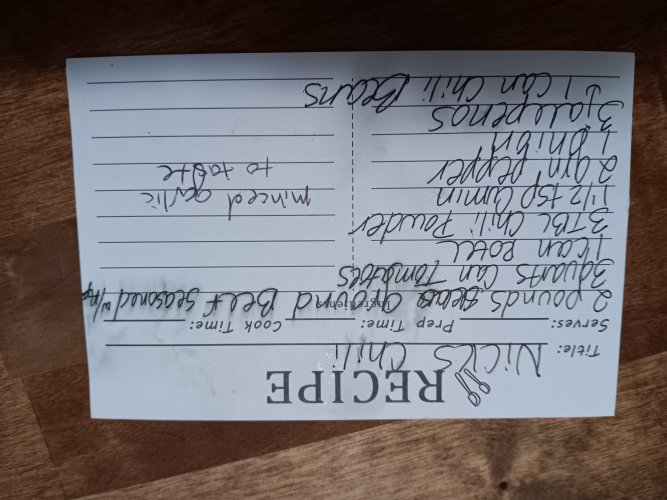 RECIPE
Title: Nicks Chili
Serves: Prep Time: Cook Time:
Ingredients
2 pounds Ground Beef seasoned
3 quarts Can Tomatoes
1 can Rotel
3 TBL Chili Powder
1 1/2 tsp Cumin
2 grn pepper
1 Onion
3 jalepenos
1 Can Chili Beans
minced garlic
to taste